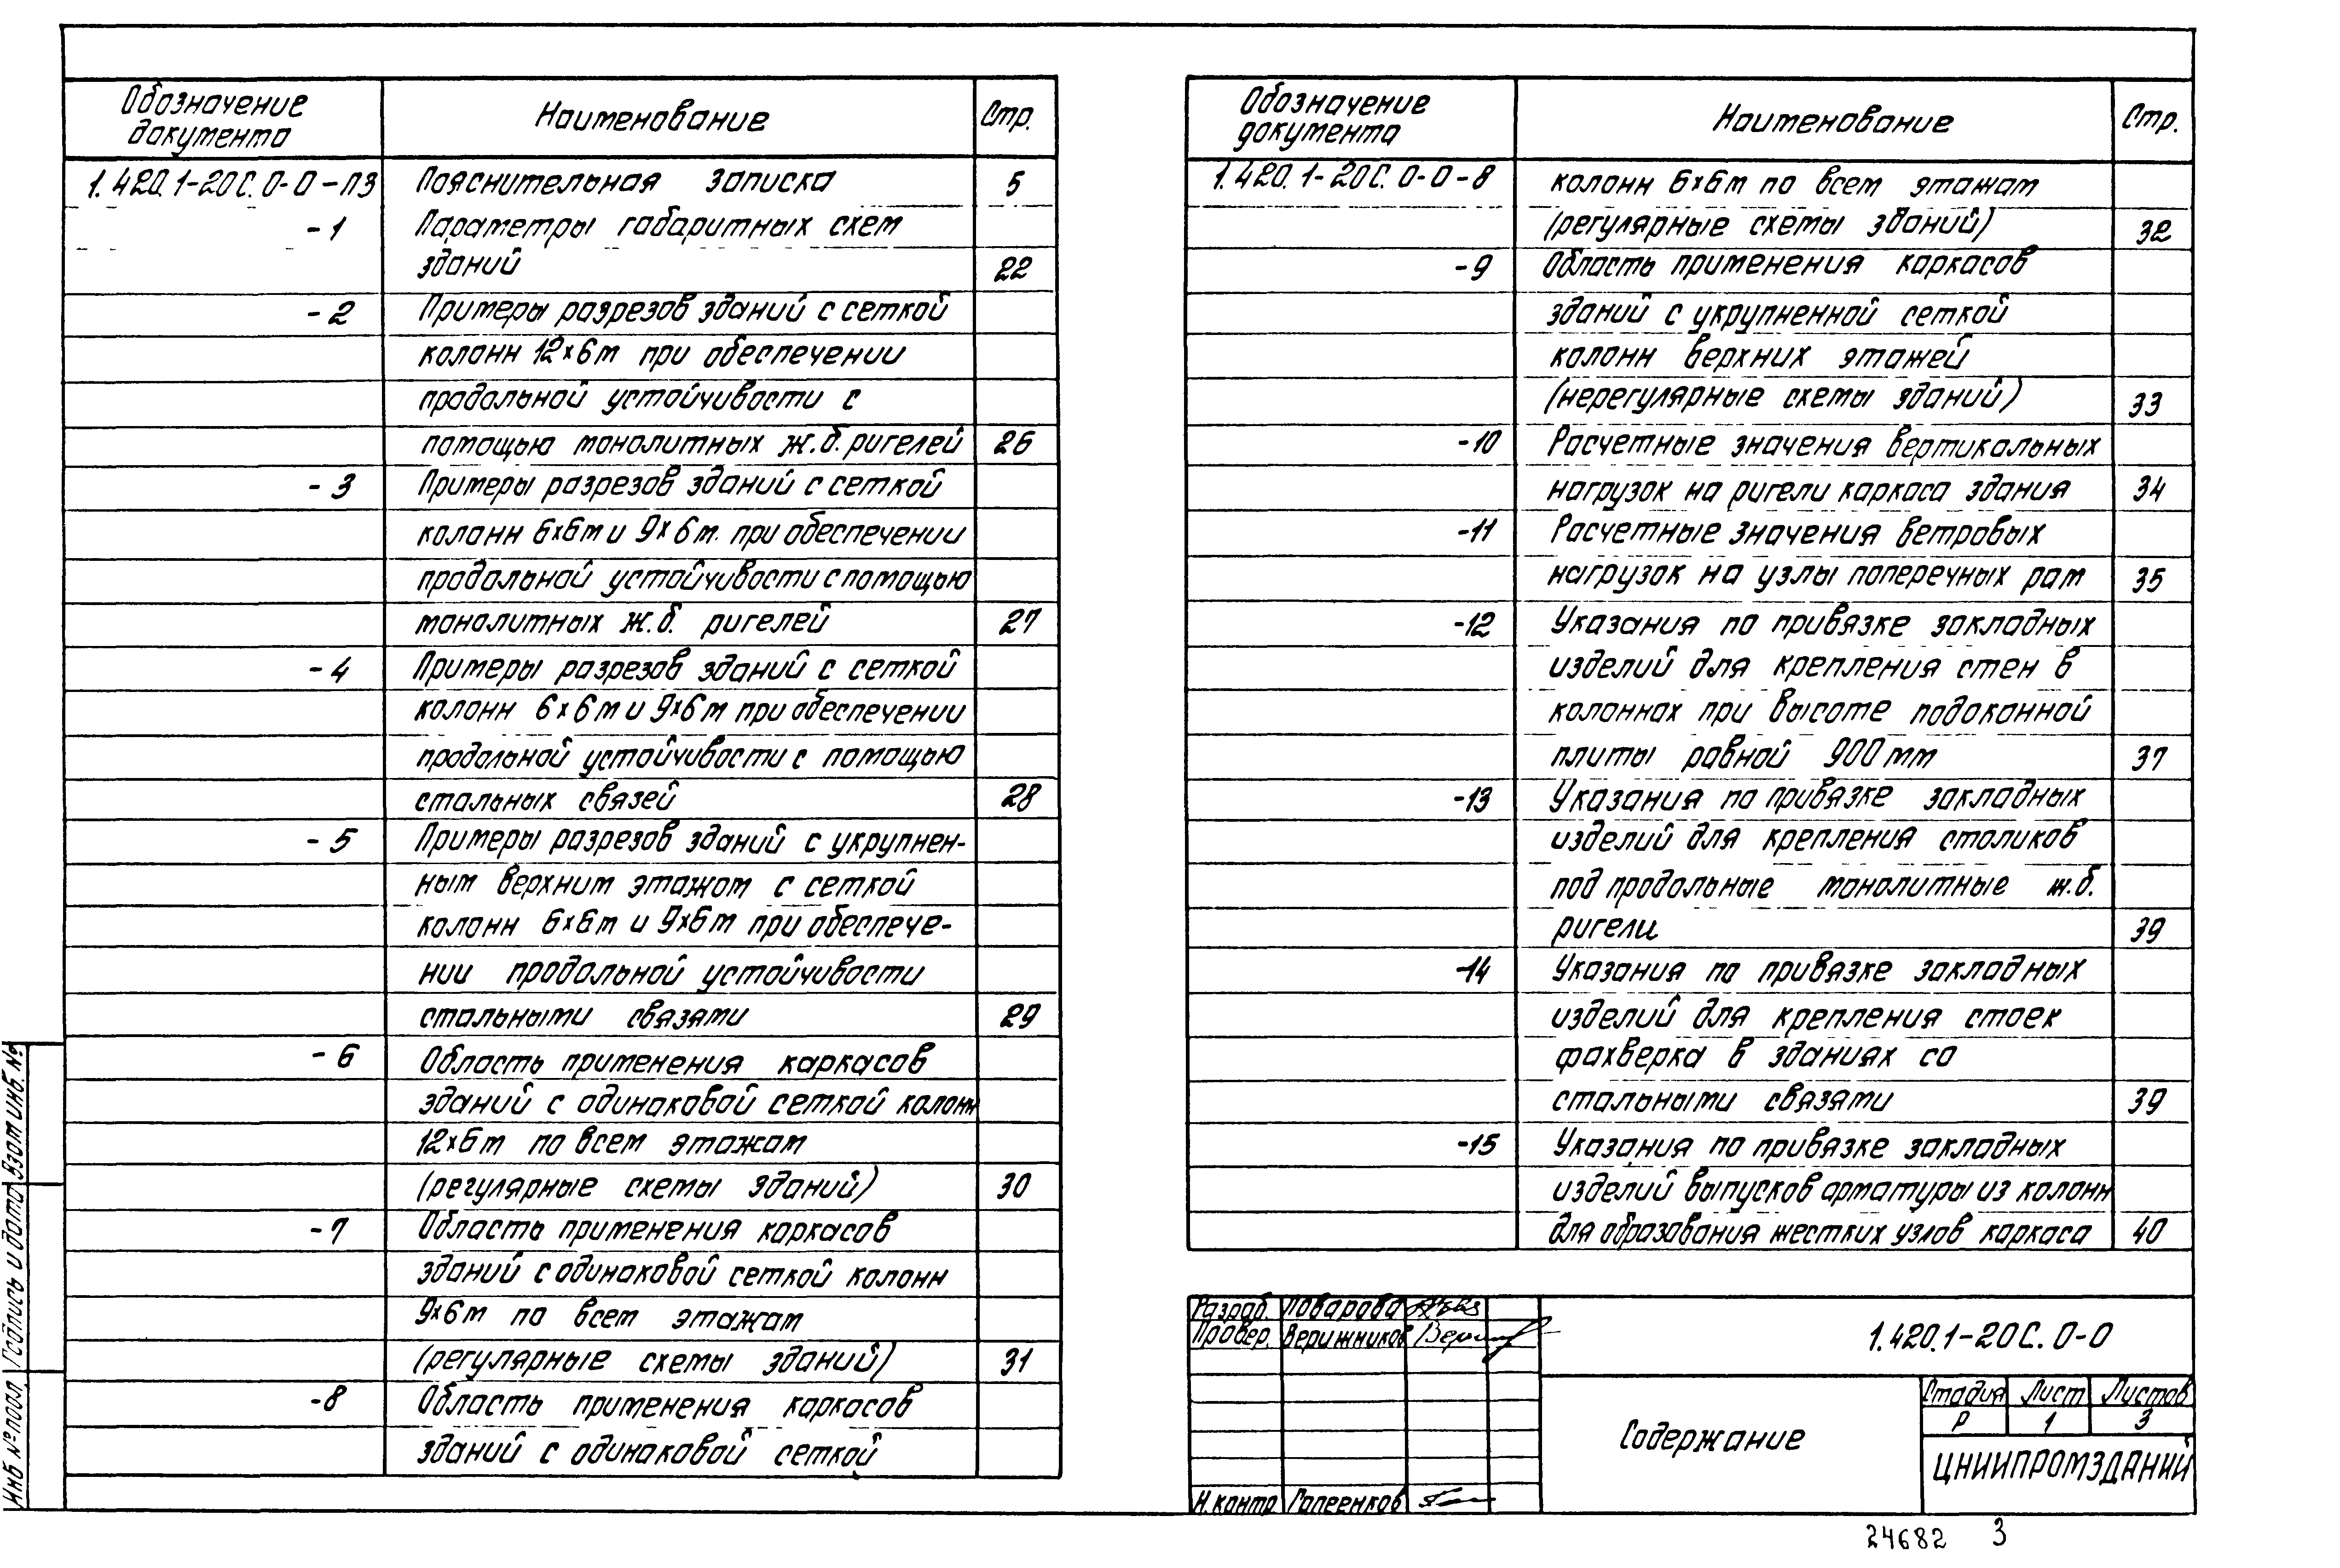 Обозначение документа Наименование Стр.
1.420.1-20С.0-0-ПЗ Пояснительная записка 5
-1 Параметры габаритных схем
зданий 22
-2 Примеры разрезов зданий с сеткой
колонн 12х6м при обеспечении
продольной устойчивости с
помощью монолитных ж.б. ригелей 26
-3 Примеры разрезов зданий с сеткой
колонн 6х6м и 9х6м. при обеспечении
продольной устойчивости с помощью
монолитных ж.б. ригелей 27
-4 Примеры разрезов зданий с сеткой
колонн 6х6м и 9х6м при обеспечении
продольной устойчивости с помощью
стальных связей 28
-5 Примеры разрезов зданий с укрупнен-
ным верхним этажом с сеткой
колонн 6х6м и 9х6м при обеспече-
нии продольной устойчивости
стальными связями 29
-6 Область применения каркасов
зданий с одинаковой сеткой колонн
12х6м по всем этажам
(регулярные схемы зданий) 30
-7 Область применения каркасов
зданий с одинаковой сеткой колонн
9х6м по всем этажам
(регулярные схемы зданий) 31
-8 Область применения каркасов
зданий с одинаковой сеткой
Обозначение документа Наименование Стр.
1.420.1-20С.0-0-8 колонн 6х6м по всем этажам
(регулярные схемы зданий) 32
-9 Область применения каркасов
зданий с укрупненной сеткой
колонн верхних этажей
(нерегулярные схемы зданий) 33
-10 Расчетные значения вертикальных
нагрузок на ригели каркаса здания 34
-11 Расчетные значения ветровых
нагрузок на узлы поперечных рам 35
-12 Указания по привязке закладных
изделий для крепления стен в
колоннах при высоте подоконной
плиты равной 900мм 37
-13 Указания по привязке закладных
изделий для крепления столиков
под продольные монолитные ж.б.
ригели 39
-14 Указания по привязке закладных
изделий для крепления стоек
фахверка в зданиях со
стальными связями 39
-15 Указания по привязке закладных
изделий выпусков арматуры из колонн
для образования жестких узлов каркаса 40
Разраб. Поварова
Провер. Верижников
Н.контр Гапеенков
1.420.1-20С.0-0
Содержание
Стадия Лист Листов
Р 1 3
ЦНИИПРОМЗДАНИЙ
Инв № подл. Подпись и дата Взам инв. №
24682 3